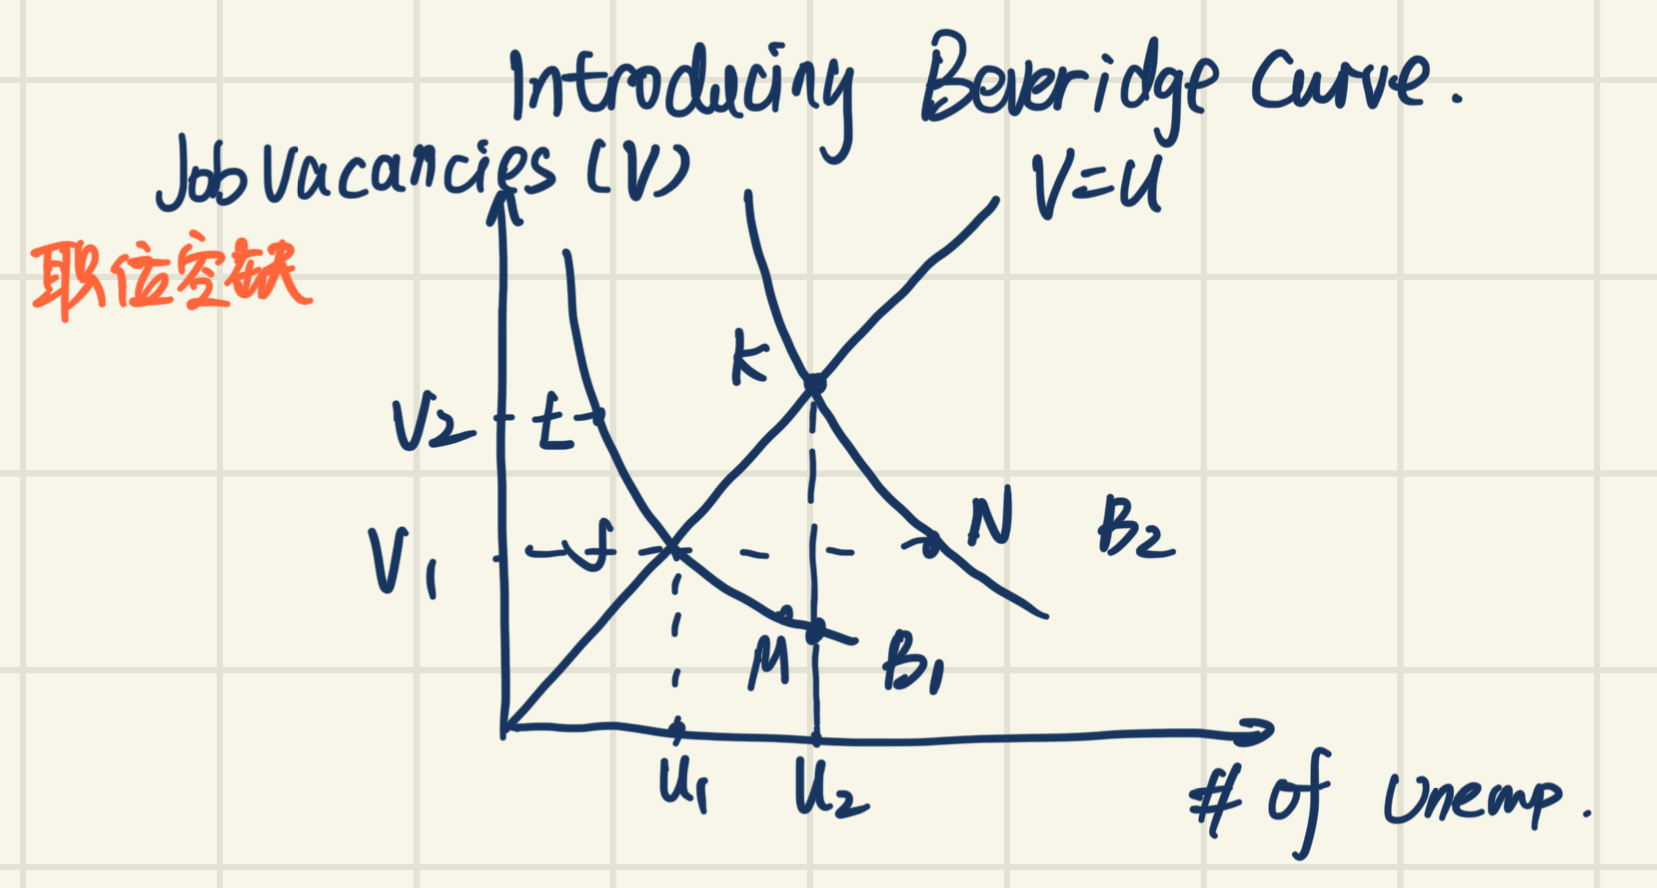 Introducing Beveridge Curve.
Job Vacancies (V)
V=U
职位空缺
K
V2
t
N
B2
V1
f
M
B1
U1
U2
# of Unemp.